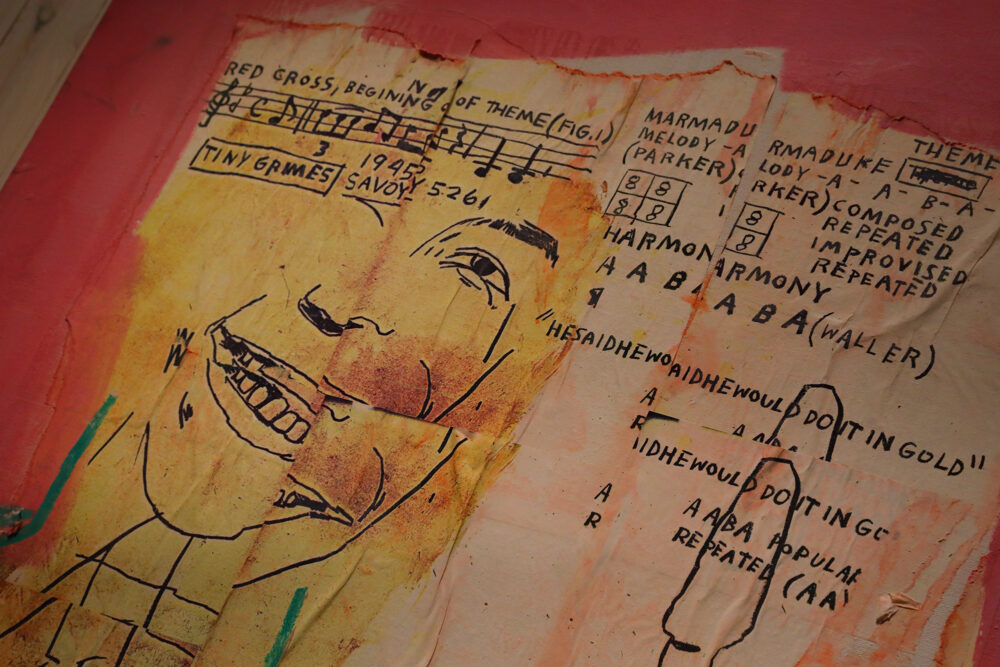 RED CROSS, BEGINING OF THEME (FIG.1)
3
TINY GRIMES
1945
SAVOY 526
MARMADU
MELODY -A
(PARKER)
8 8
8 8
HARMON
A A B A
"HESAIDHEWO
A
R
THEME
RMADUKE
LODY -A- A- B- A-
RKER) COMPOSED
REPEATED
IMPROVISED
REPEATED
8
8
ARMONY
A B A (WALLER)
AIDHEWOULD DO IT IN GOLD"
IDHEWOULD DO IT IN GO
A
R
AABA POPULAR
REPEATED (AA